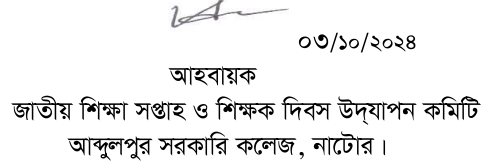 ০৩/১০/২০২৪
আহবায়ক
জাতীয় শিক্ষা সপ্তাহ ও শিক্ষক দিবস উদ্‌যাপন কমিটি
আব্দুলপুর সরকারি কলেজ, নাটোর।